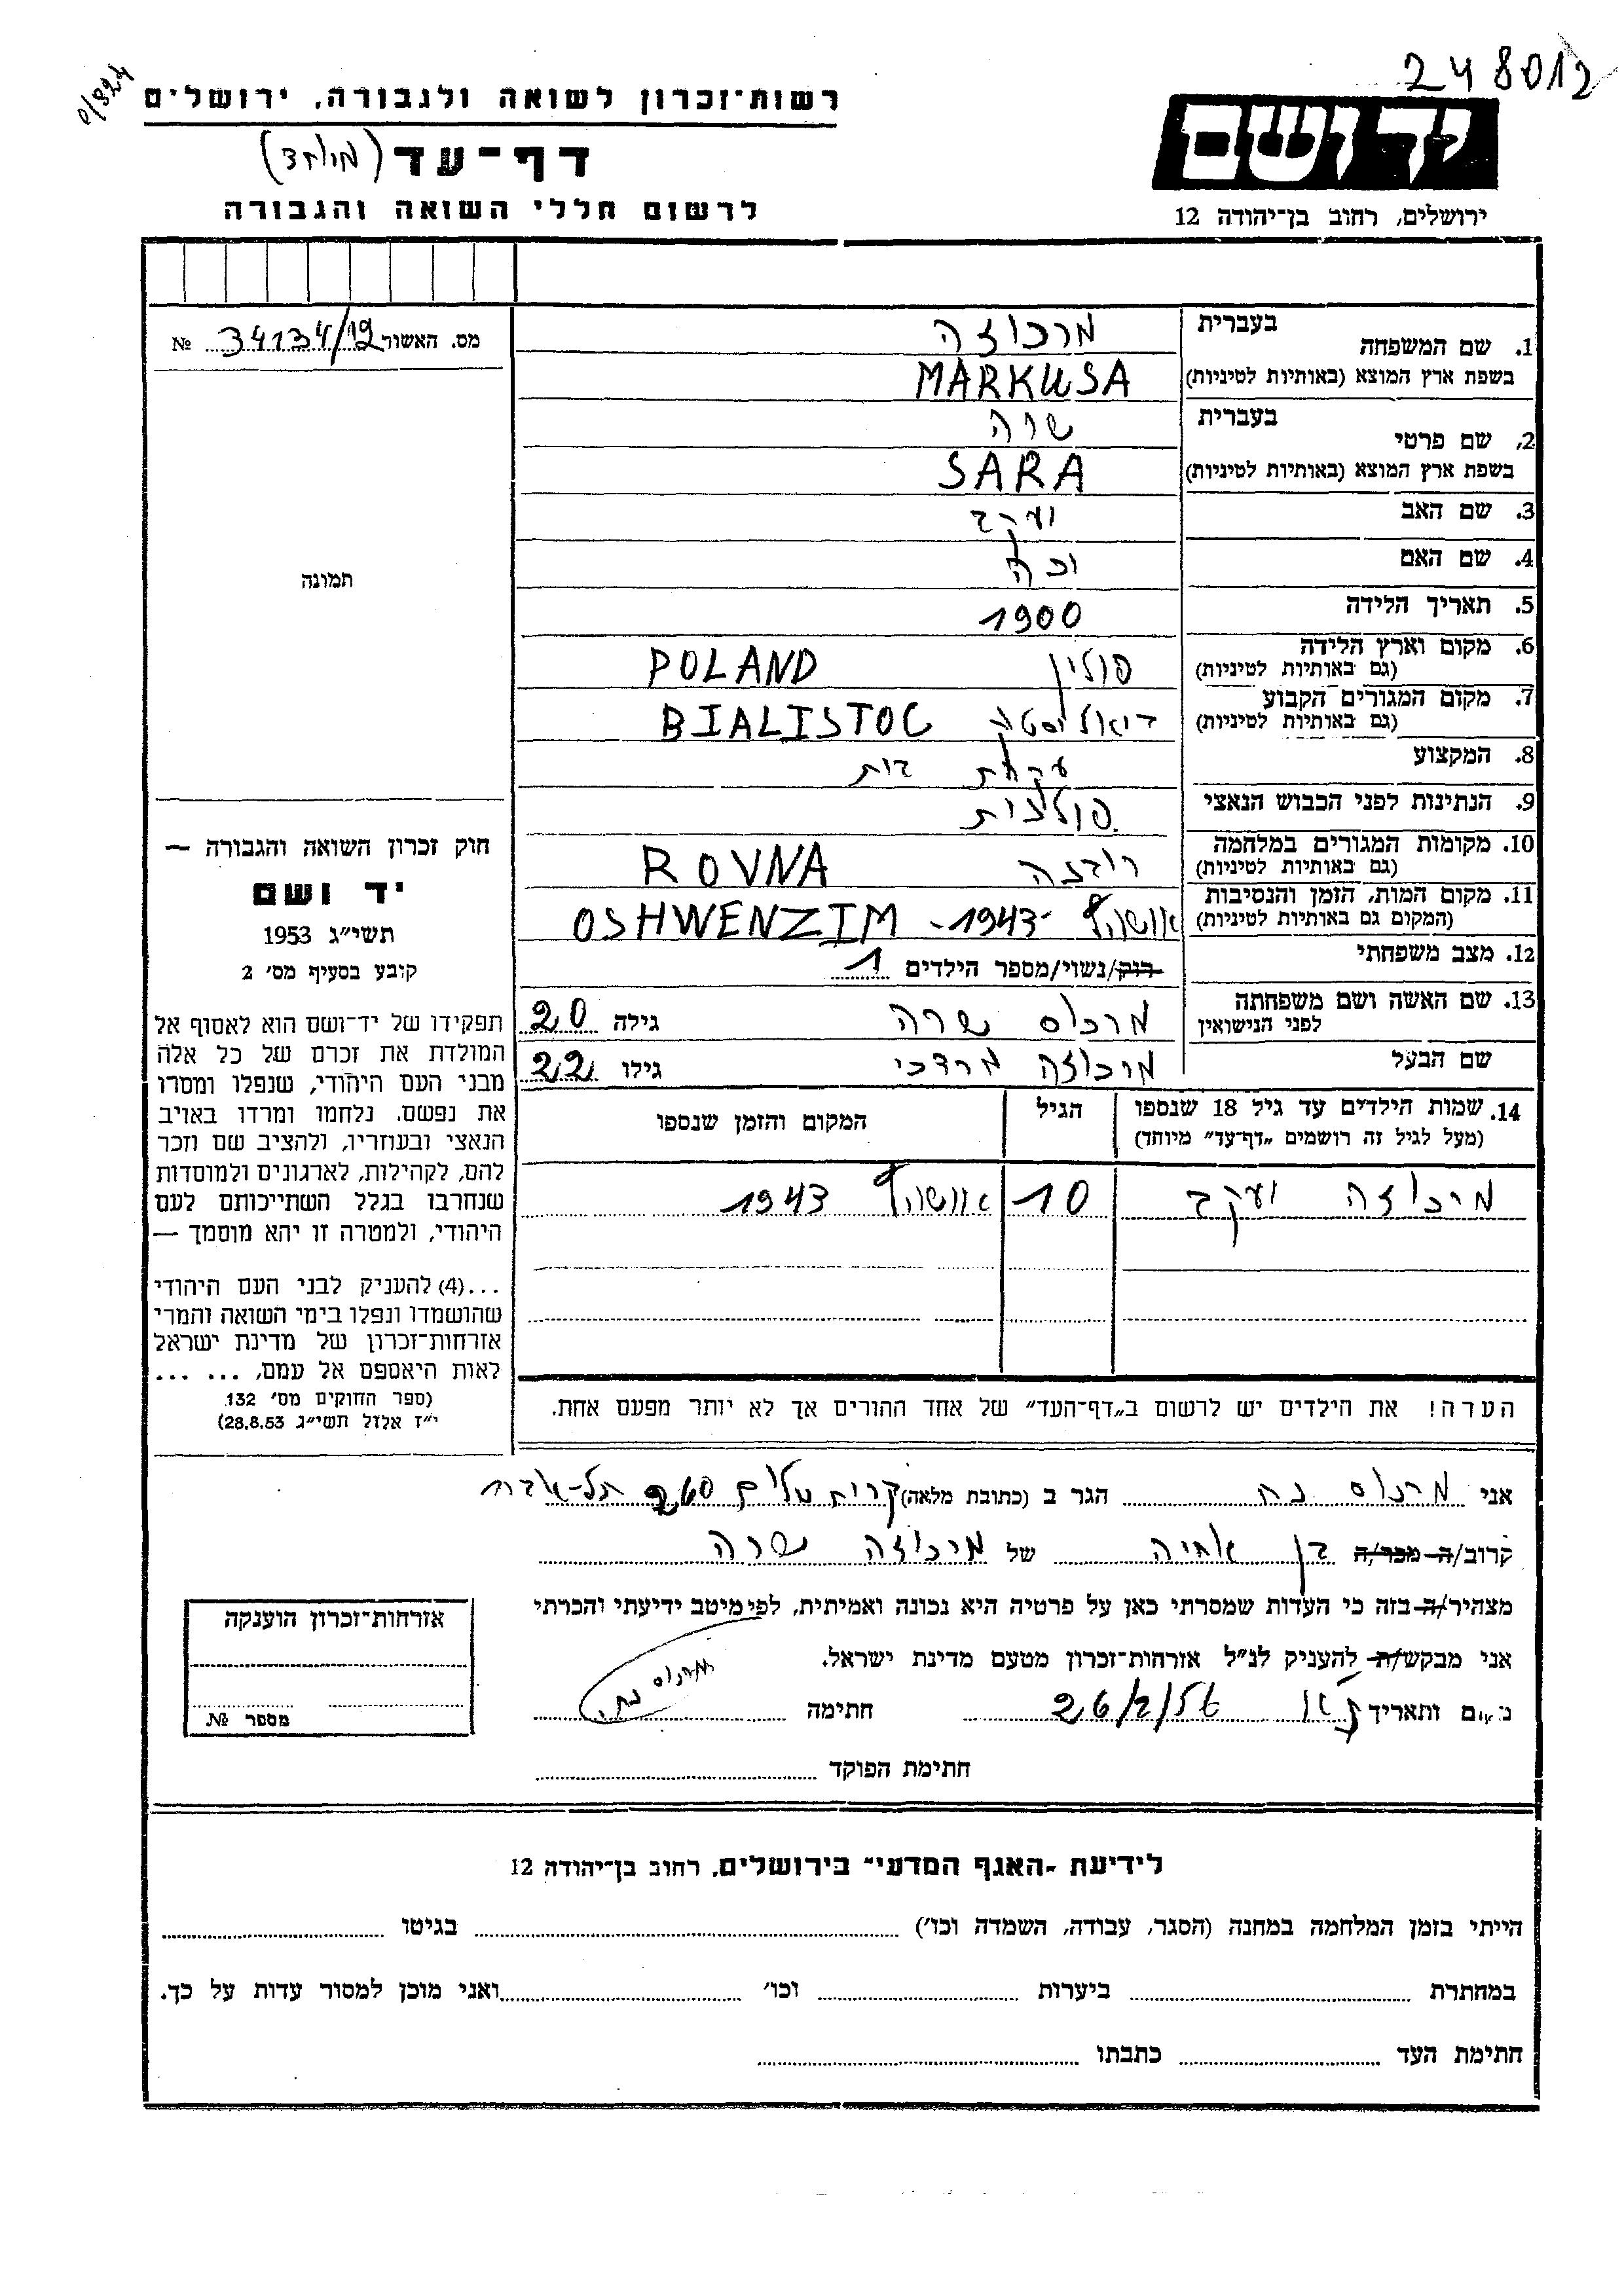 248012
ידושם
ירושלים, רחוב בן־יהודה 12
רשות־זכרון לשואה ולגבורה, ירושלים
דף־עד (מיוחד)
לרשום חללי השואה והגבורה
מס. האשור 34134/19 №
תמונה
1. שם המשפחה בעברית מרכוזה
בשפת ארץ המוצא (באותיות לטיניות) MARKUSA
2. שם פרטי בעברית שרה
בשפת ארץ המוצא (באותיות לטיניות) SARA
3. שם האב יעקב
4. שם האם
5. תאריך הלידה 1900
6. מקום וארץ הלידה (גם באותיות לטיניות) פולין POLAND
7. מקום המגורים הקבוע (גם באותיות לטיניות) ביאליסטוק BIALISTOC
8. המקצוע עקרת בית
9. הנתינות לפני הכבוש הנאצי פולנית
10. מקומות המגורים במלחמה (גם באותיות לטיניות) רובנה ROVNA
11. מקום המות, הזמן והנסיבות (המקום גם באותיות לטיניות) אושויץ -1943- OSHWENZIM
12. מצב משפחתי רוק/נשוי/מספר הילדים 1
13. שם האשה ושם משפחתה לפני הנישואין מרכוס שרה גילה 20
שם הבעל מרכוזה מרדכי גילו 22
14. שמות הילדים עד גיל 18 שנספו (מעל לגיל זה רושמים „דף־עד” מיוחד) הגיל המקום והזמן שנספו
מרכוזה יעקב 10 אושויץ 1943
הערה! את הילדים יש לרשום ב„דף־העד” של אחד ההורים אך לא יותר מפעם אחת.
חוק זכרון השואה והגבורה —
יד ושם
תשי״ג 1953
קובע בסעיף מס׳ 2
תפקידו של יד־ושם הוא לאסוף אל
המולדת את זכרם של כל אלה
מבני העם היהודי, שנפלו ומסרו
את נפשם, נלחמו ומרדו באויב
הנאצי ובעוזריו, ולהציב שם וזכר
להם, לקהילות, לארגונים ולמוסדות
שנחרבו בגלל השתייכותם לעם
היהודי, ולמטרה זו יהא מוסמך —
...(4) להעניק לבני העם היהודי
שהושמדו ונפלו בימי השואה והמרי
אזרחות־זכרון של מדינת ישראל
לאות היאספם אל עמם, ... ...
(ספר החוקים מס׳ 132
י״ז אלול תשי״ג 28.8.53)
אני מרכוס נח הגר ב (כתובת מלאה) קרית שלום 260 תל-אביב
קרוב/ה מכר/ה בן אחיה של מרכוזה שרה
מצהיר/ה בזה כי העדות שמסרתי כאן על פרטיה היא נכונה ואמיתית, לפי מיטב ידיעתי והכרתי
אני מבקש/ת להעניק לנ״ל אזרחות־זכרון מטעם מדינת ישראל.
מקום ותאריך ת״א 26/2/56 חתימה מרכוס נח
חתימת הפוקד
אזרחות־זכרון הוענקה
מספר №
לידיעת ״האגף המדעי״ בירושלים, רחוב בן־יהודה 12
הייתי בזמן המלחמה במחנה (הסגר, עבודה, השמדה וכו׳) בגיטו
במחתרת ביערות וכו׳ ואני מוכן למסור עדות על כך.
חתימת העד כתבתו